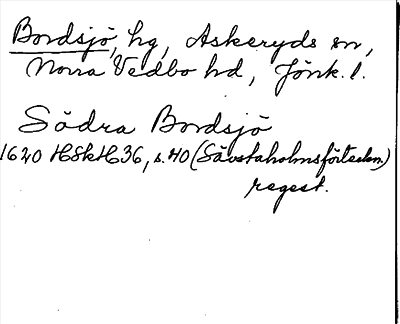 Bordsjö, hg, Askeryds sn,
Norra Vedbo hd, Jönk. l.
Södra Bordsjö
1620 HSkH 36, s. 40 (Sävstaholmsförteckn.)
regest.